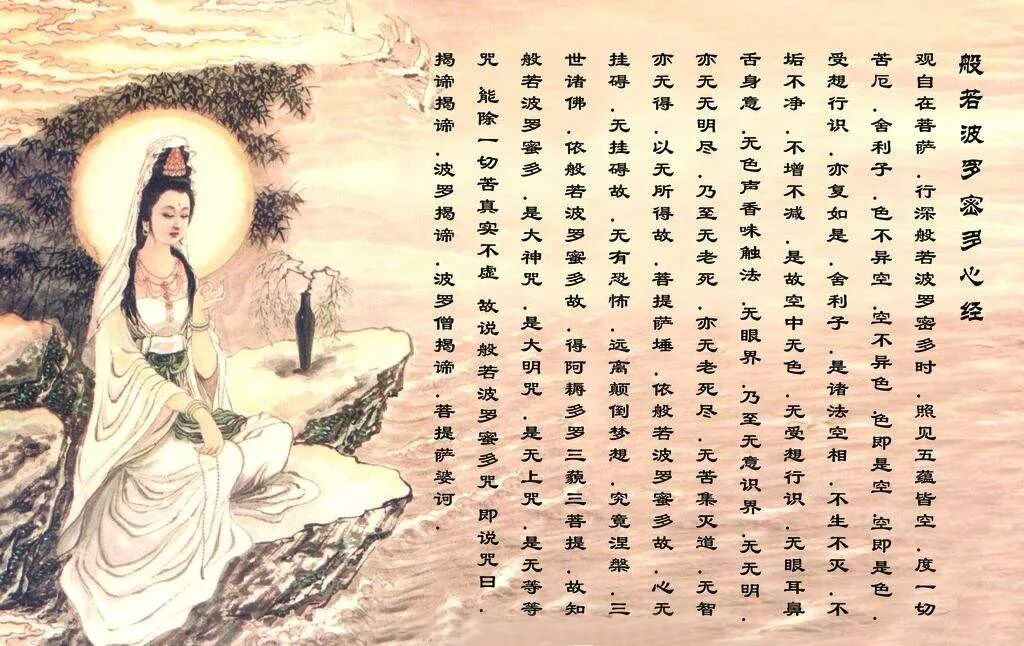 般若波罗密多心经
观自在菩萨.行深般若波罗密多时.照见五蕴皆空.度一切
苦厄.舍利子.色不异空.空不异色 色即是空.空即是色.
受想行识.亦复如是.舍利子.是诸法空相.不生不灭.不
垢不净.不增不减.是故空中无色.无受想行识.无眼耳鼻
舌身意.无色声香味触法.无眼界.乃至无意识界.无无明.
亦无无明尽.乃至无老死.亦无老死尽.无苦集灭道.无智
亦无得.以无所得故.菩提萨埵.依般若波罗蜜多故.心无
挂碍.无挂碍故.无有恐怖.远离颠倒梦想.究竟涅槃.三
世诸佛.依般若波罗蜜多故.得阿耨多罗三藐三菩提.故知
般若波罗蜜多.是大神咒.是大明咒.是无上咒.是无等等
咒 能除一切苦真实不虚 故说般若波罗蜜多咒 即说咒曰.
揭谛揭谛.波罗揭谛.波罗僧揭谛.菩提萨婆诃.